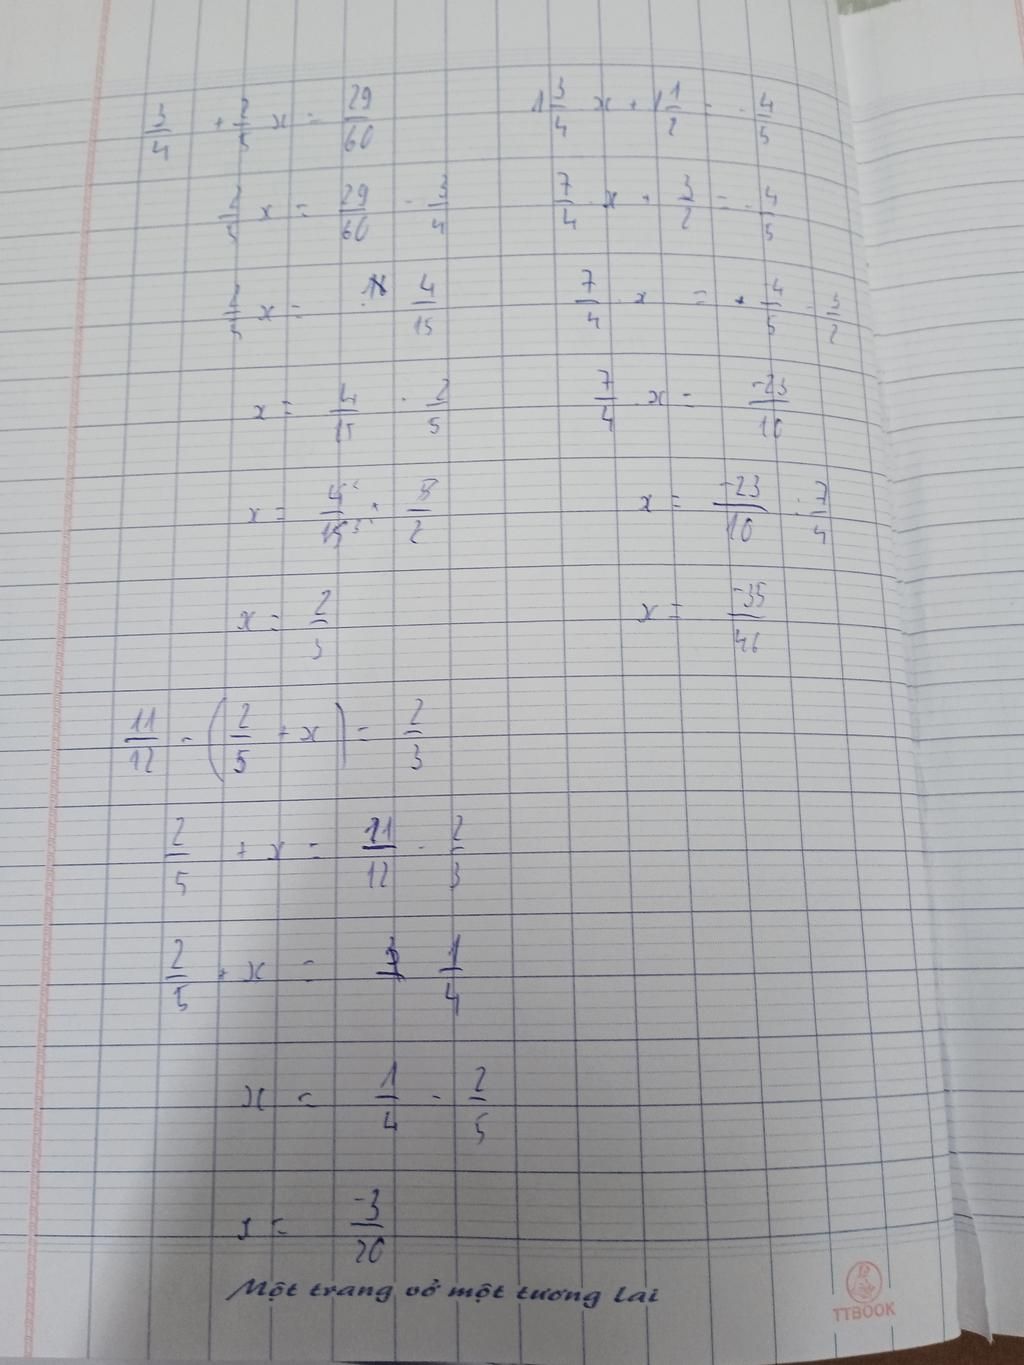 3/4 + 2/5 x = 29/60
2/5 x = 29/60 - 3/4
2/5 x = 4/15
x = 4/15 : 2/5
x = 4/15 · 5/2
x = 2/3
1 3/4 x + 1 1/2 = - 4/5
7/4 · x + 3/2 = - 4/5
7/4 · x = - 4/5 - 3/2
7/4 · x = -23/10
x = -23/10 : 7/4
x = -35/46
11/12 - (2/5 + x) = 2/3
2/5 + x = 11/12 - 2/3
2/5 + x = 1/4
x = 1/4 - 2/5
x = -3/20
Một trang vở một tương lai
TTBOOK